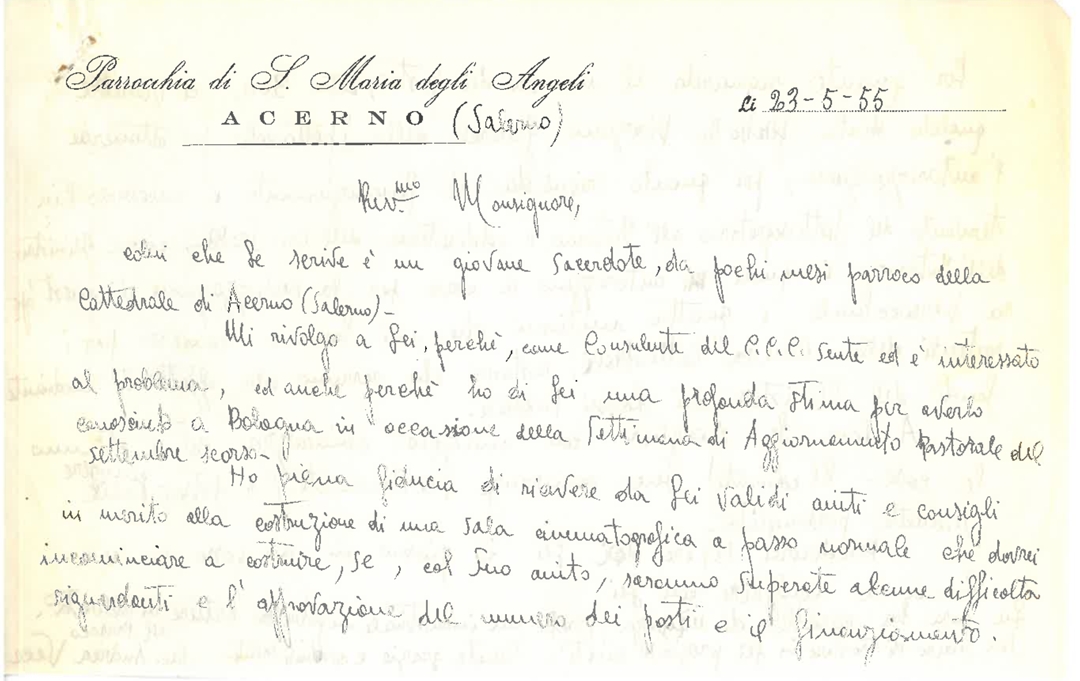 Parrocchia di S. Maria degli Angeli
ACERNO (Salerno)
li 23-5-55
Rev.mo Monsignore,
colui che Le scrive è un giovane Sacerdote, da pochi mesi parroco della
Cattedrale di Acerno (Salerno)-
Mi rivolgo a Lei, perchè, come Consulente del C.C.C. sente ed e' interessato
al problema, ed anche perchè ho di Lei una profonda stima per averlo
conosciuto a Bologna in occasione della Settimana di Aggiornamento Pastorale del
settembre scorso-
Ho piena fiducia di ricevere da Lei validi aiuti e consigli
in merito alla costruzione di una sala cinematografica a passo normale che dovrei
incominciare a costruire, se, col Suo aiuto, saranno superate alcune difficoltà
riguardanti e l'approvazione del numero dei posti e il finanziamento.